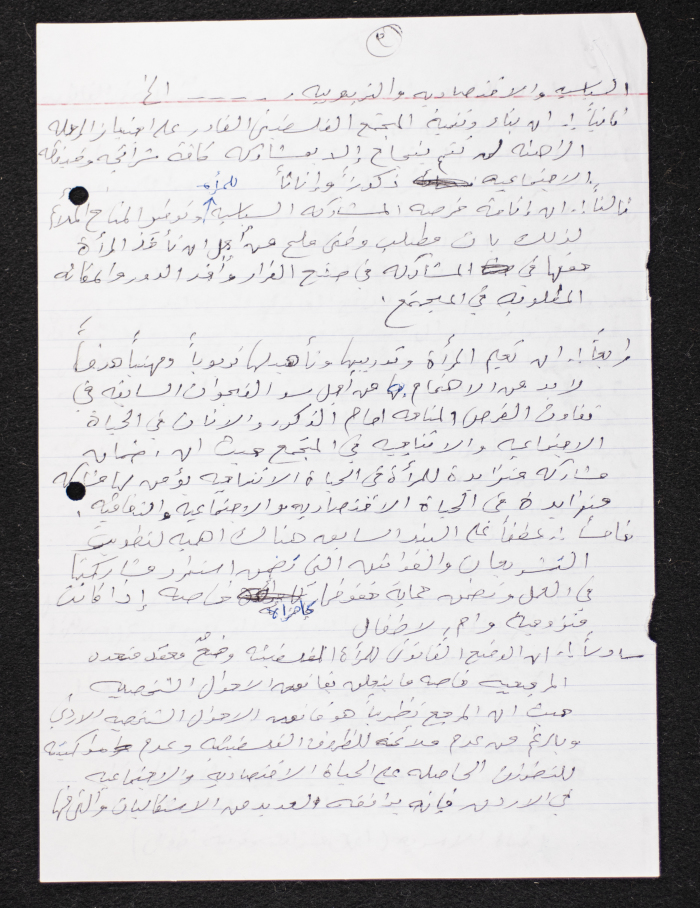 ٢
السياسية والاقتصادية والتربوية ، ـ ـ ـ ـ ـ الخ
ثانياً :- ان بناء وتنمية المجتمع الفلسطيني القادر على اجتياز المرحلة
الراهنة لن تتم بنجاح إلا بمشاركة كافة شرائحه وفئاته
الاجتماعية ذكوراً وإناثاً
ثالثاً :- ان إتاحة فرصة المشاركة السياسية للمرأة وتوفير المناخ الملائم
لذلك بات مطلب وطني ملح من أجل ان تأخذ المرأة
حقها في المشاركة في صنع القرار وأخذ الدور والمكانة
المطلوبة في المجتمع .
رابعاً :- ان تعليم المرأة وتدريبها وتأهيلها تربوياً ومهنياً هدفاً
لابد من الاهتمام بها من أجل سد الفجوات السابقة في
تفاوت الفرص المتاحة امام الذكور والاناث في الحياة
الاجتماعية والانتاجية في المجتمع حيث ان ضمان
مشاركة متزايدة للمرأة في الحياة الانتاجية يؤمن لها مشاركة
متزايدة في الحياة الاقتصادية والاجتماعية والثقافية .
خامساً :- عطفاً على البند السابق هناك اهمية لتطوير
التشريعات والقوانين التي تضمن استمرار مشاركتها
في العمل وتضمن حماية حقوقها كامرأة خاصة إذا كانت
متزوجة وام لاطفال
سادساً :- ان الوضع القانوني للمرأة الفلسطينية وضعٌ معقد متعدد
المرجعية خاصة ما يتعلق بقانون الاحوال الشخصية
حيث ان المرجع نظرياً هو قانون الاحوال الشخصية الاردني
وبالرغم من عدم ملائمته للظروف الفلسطينية وعدم مواكبته
للتطورات الحاصلة على الحياة الاقتصادية والاجتماعية
في الاردن فإنه يرافقه العديد من الاشكاليات والتي منها